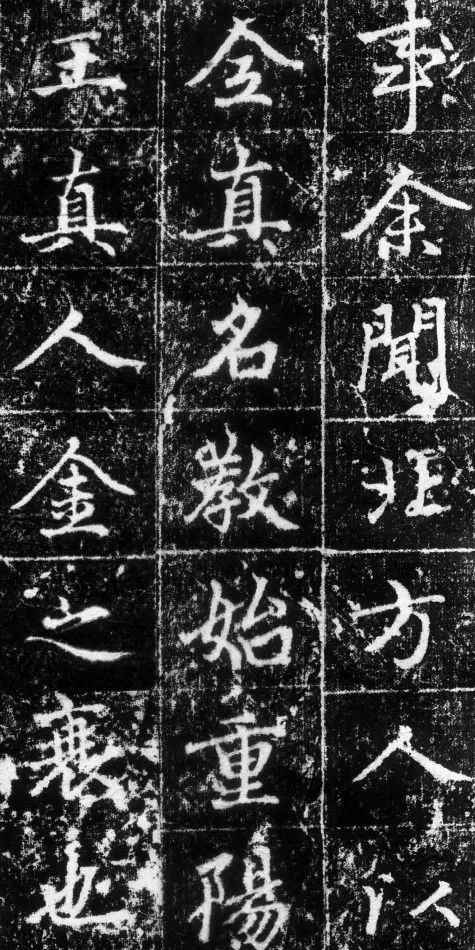 事余聞北方人以
全真名教始重陽
王真人金之衰也